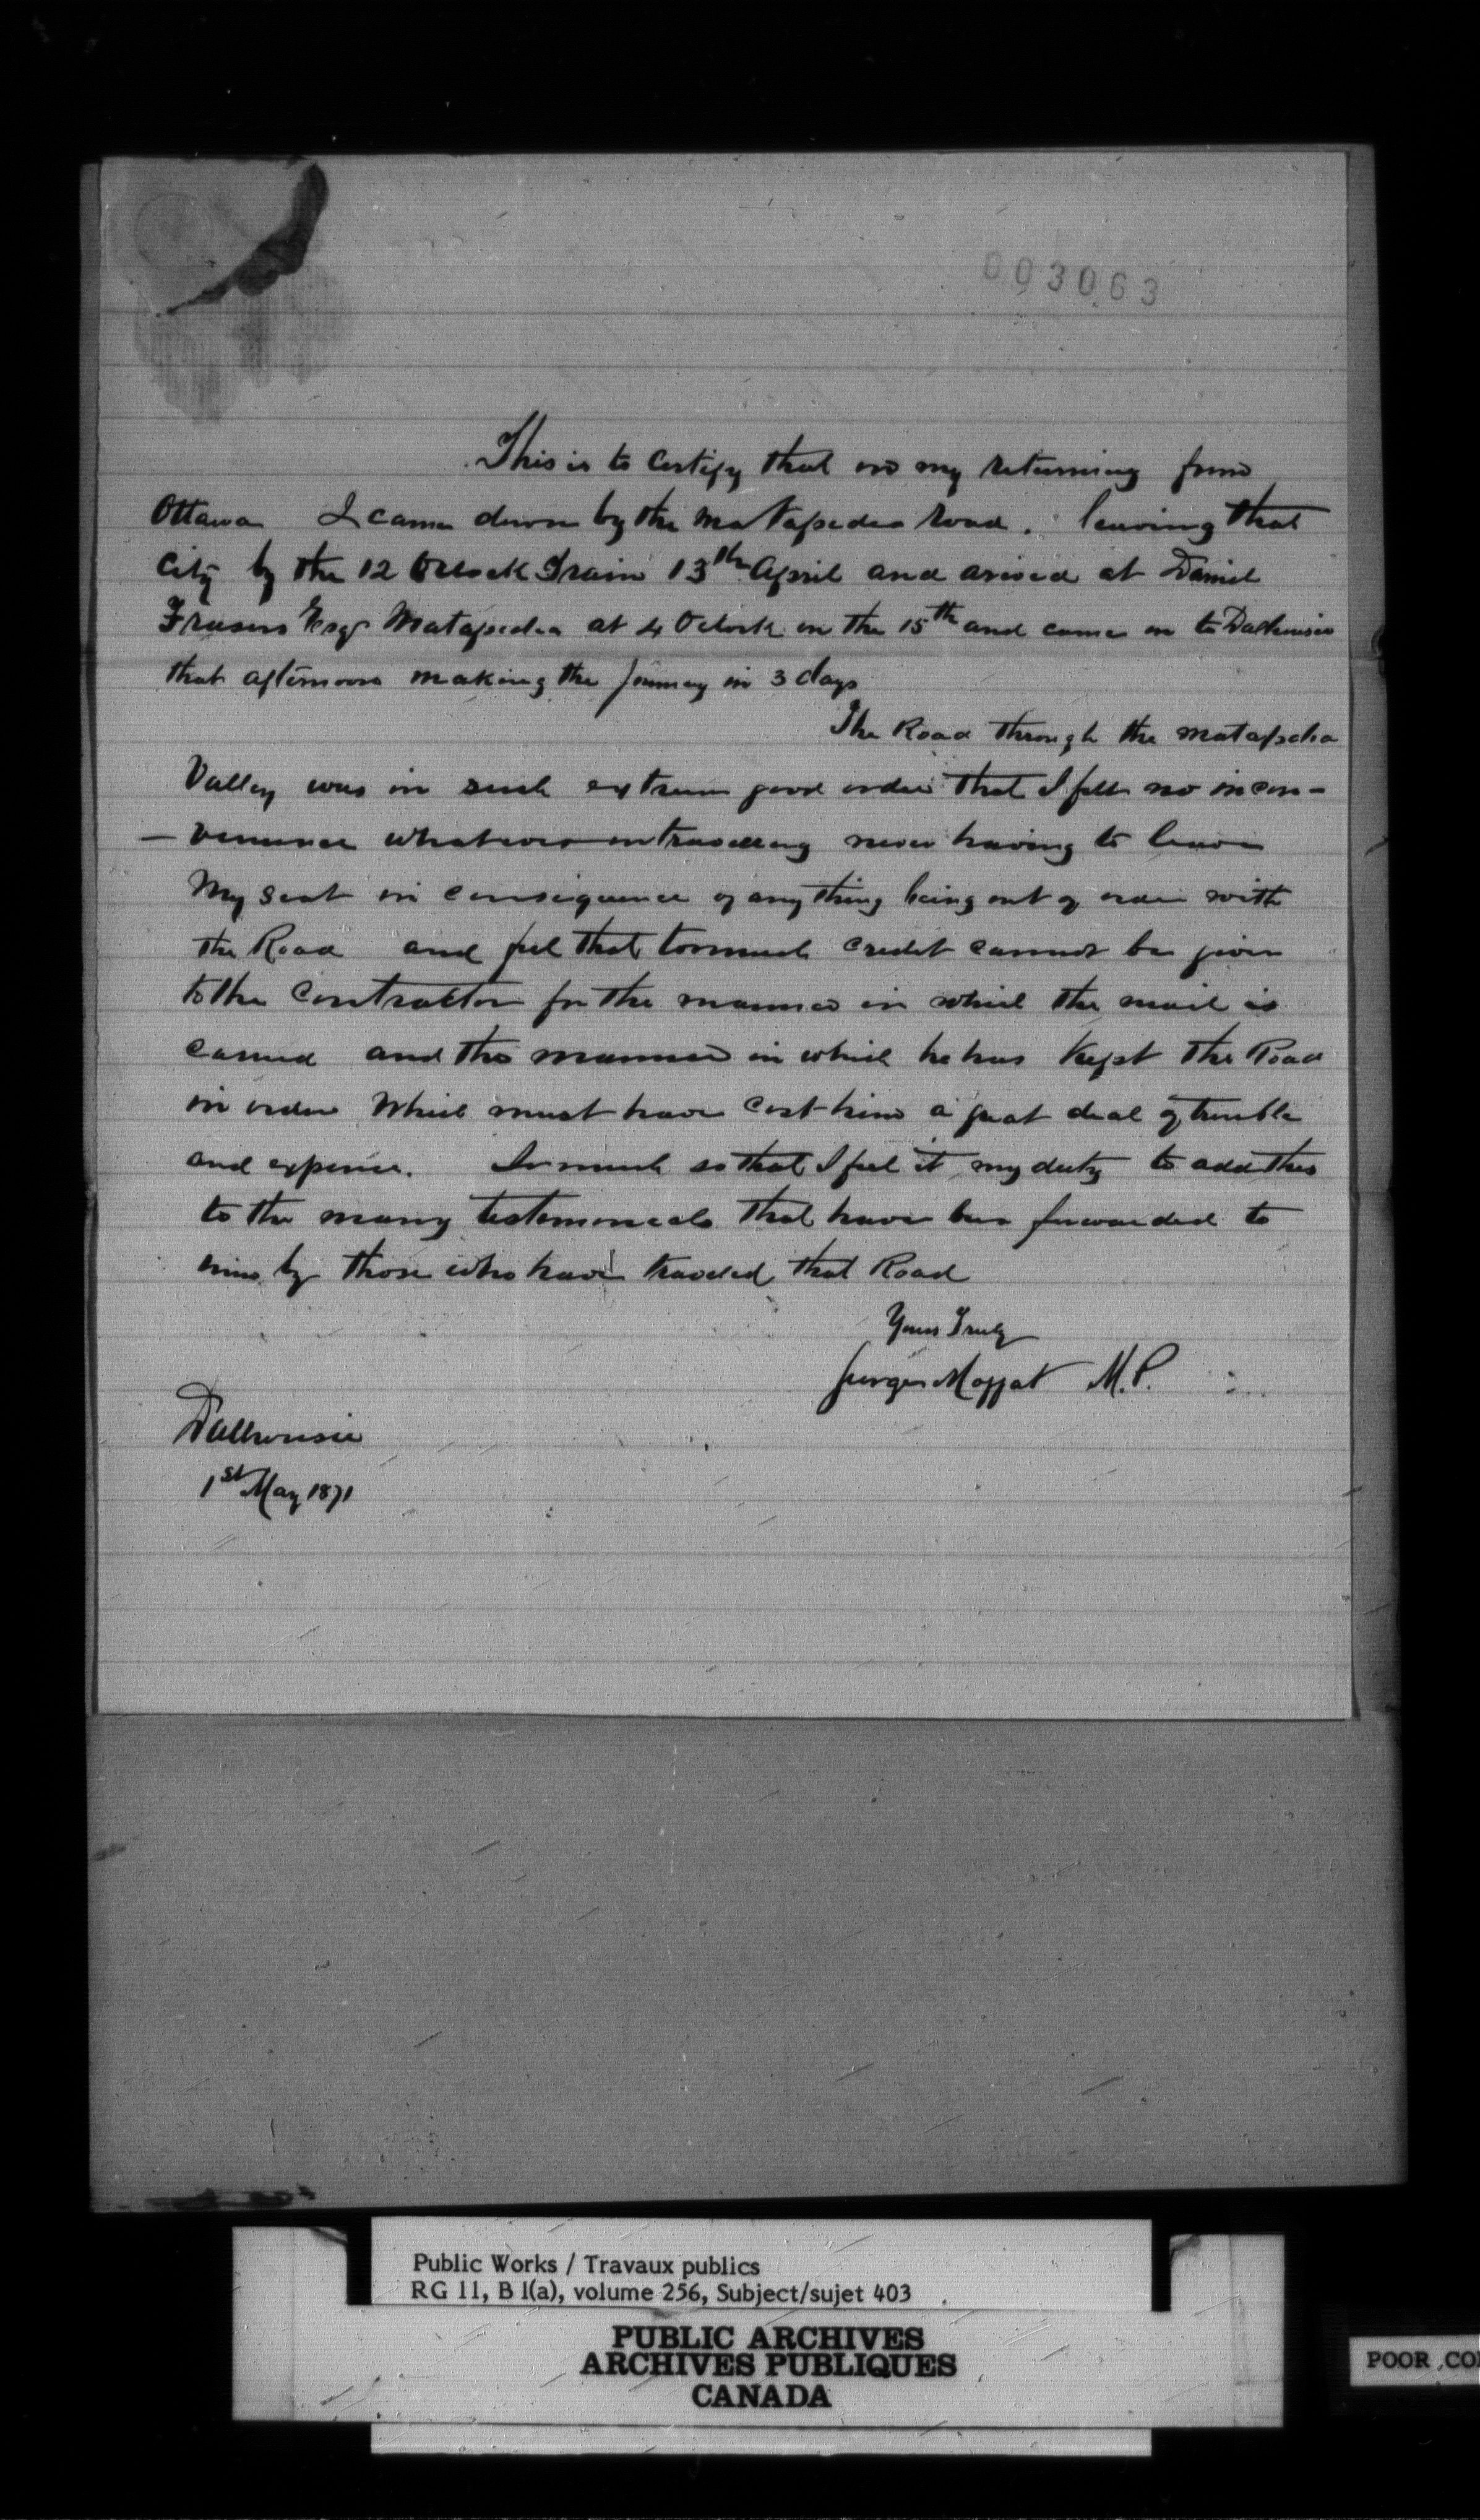 003063
This is to Certify that on my returning from
Ottawa I came down by the Matapedia Road. leaving that
City by the 12 OClock Train 13th April and arived at Daniel
Frasers Esqr Matapedia at 4 OClock on the 15th and came on to Dalhousie
that afternoon making the Journey in 3 days
The Road through the Matapedia
Valley was in such extreem good order that I felt no incon-
- venience whatever in travelling never having to leave
My seat in consequence of any thing being out of order with
the Road and feel that too much credit cannot be given
to the Contractor for the manner in which the mail is
carried and the manner in which he has kept the Road
in order Which must have cost him a great deal of trouble
and expence. In much so that I feel it my duty to add this
to the many testemonials that have been forwarded to
him by those who have traveled that Road
Yours Truly
George Moffat M.P.
Dalhousie
1st May 1871
Public Works / Travaux publics
RG 11, B 1(a), volume 256, Subject/sujet 403
PUBLIC ARCHIVES
ARCHIVES PUBLIQUES
CANADA
POOR CO